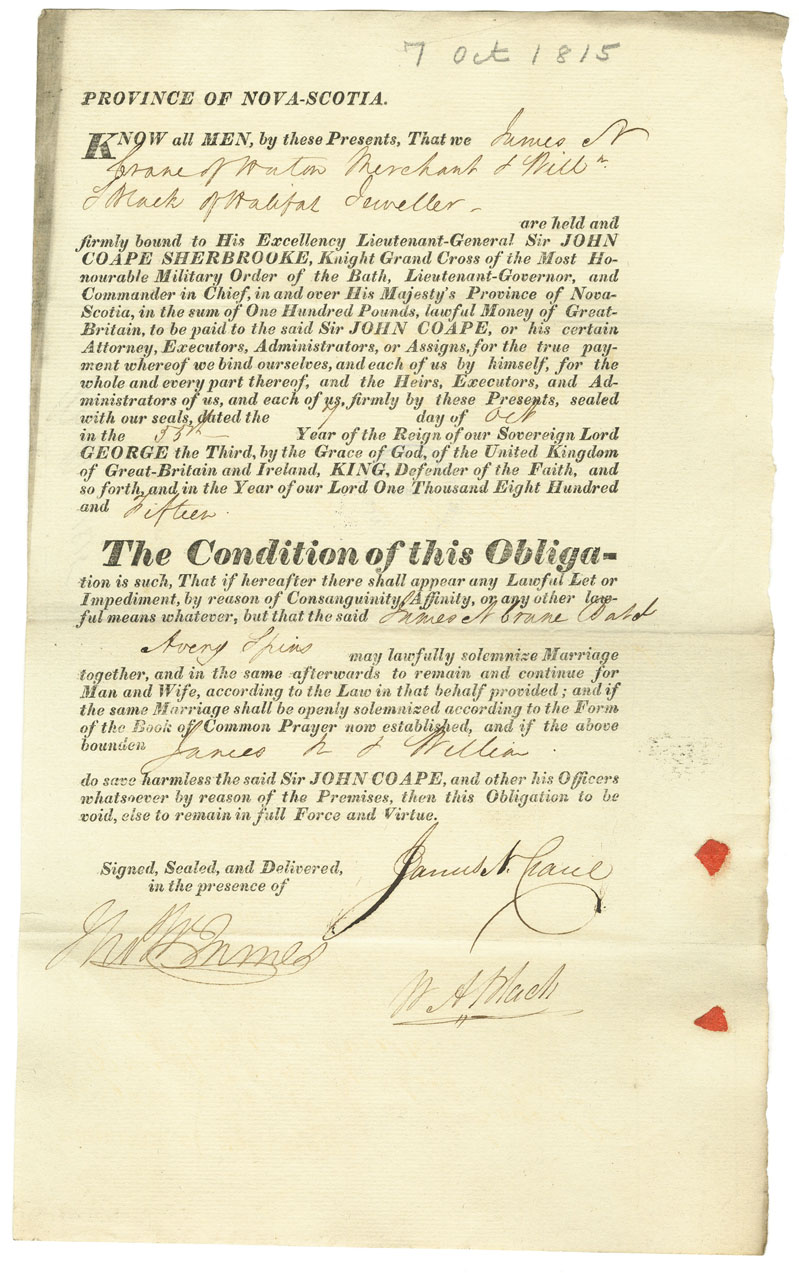 7 Oct 1815
PROVINCE OF NOVA-SCOTIA.
KNOW all MEN, by these Presents, That we James N
Crane of Horton Merchant & Willm
Black of Halifax Jeweller
are held and
firmly bound to His Excellency Lieutenant-General Sir JOHN
COAPE SHERBROOKE, Knight Grand Cross of the Most Ho-
nourable Military Order of the Bath, Lieutenant-Governor, and
Commander in Chief, in and over His Majesty's Province of Nova-
Scotia, in the sum of One Hundred Pounds, lawful Money of Great-
Britain, to be paid to the said Sir JOHN COAPE, or his certain
Attorney, Executors, Administrators, or Assigns, for the true pay-
ment whereof we bind ourselves, and each of us by himself, for the
whole and every part thereof, and the Heirs, Executors, and Ad-
ministrators of us, and each of us, firmly by these Presents, sealed
with our seals, dated the 7 day of Oct
in the 55th Year of the Reign of our Sovereign Lord
GEORGE the Third, by the Grace of God, of the United Kingdom
of Great-Britain and Ireland, KING, Defender of the Faith, and
so forth, and in the Year of our Lord One Thousand Eight Hundred
and Fifteen.
The Condition of this Obliga-
tion is such, That if hereafter there shall appear any Lawful Let or
Impediment, by reason of Consanguinity, Affinity, or any other law-
ful means whatever, but that the said James N Crane
Avery Spins may lawfully solemnize Marriage
together, and in the same afterwards to remain and continue for
Man and Wife, according to the Law in that behalf provided; and if
the same Marriage shall be openly solemnized according to the Form
of the Book of Common Prayer now established, and if the above
bounden James N & William
do save harmless the said Sir JOHN COAPE, and other his Officers
whatsoever by reason of the Premises, then this Obligation to be
void, else to remain in full Force and Virtue.
Signed, Sealed, and Delivered,
in the presence of
James N. Crane
Thos W James
W A Black